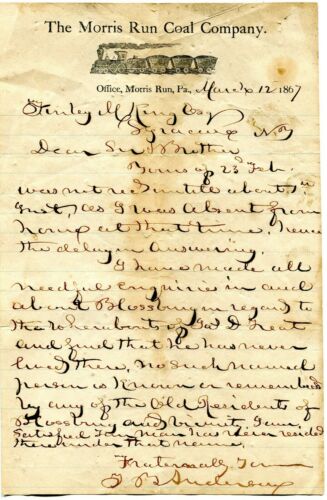 The Morris Run Coal Company.
Office, Morris Run, Pa., March 12 1867
Stanley M King Esq
Syracuse NY
Dear Sir & Brother
Yours of 23d Feb.
was not recd untill about 1st
inst, as I was absent from
home at that time, hence
the delay in answering.
I have made all
needful enquiries in and
about Blossburg in regard to
the whereabouts of D Treat
and find that he has never
lived there, no such named
person is known or remembered
by any of the Old Residents of
Blossburg and vicinity I am
satisfied no man has ever resided
there under that name.
Fraternally Yours